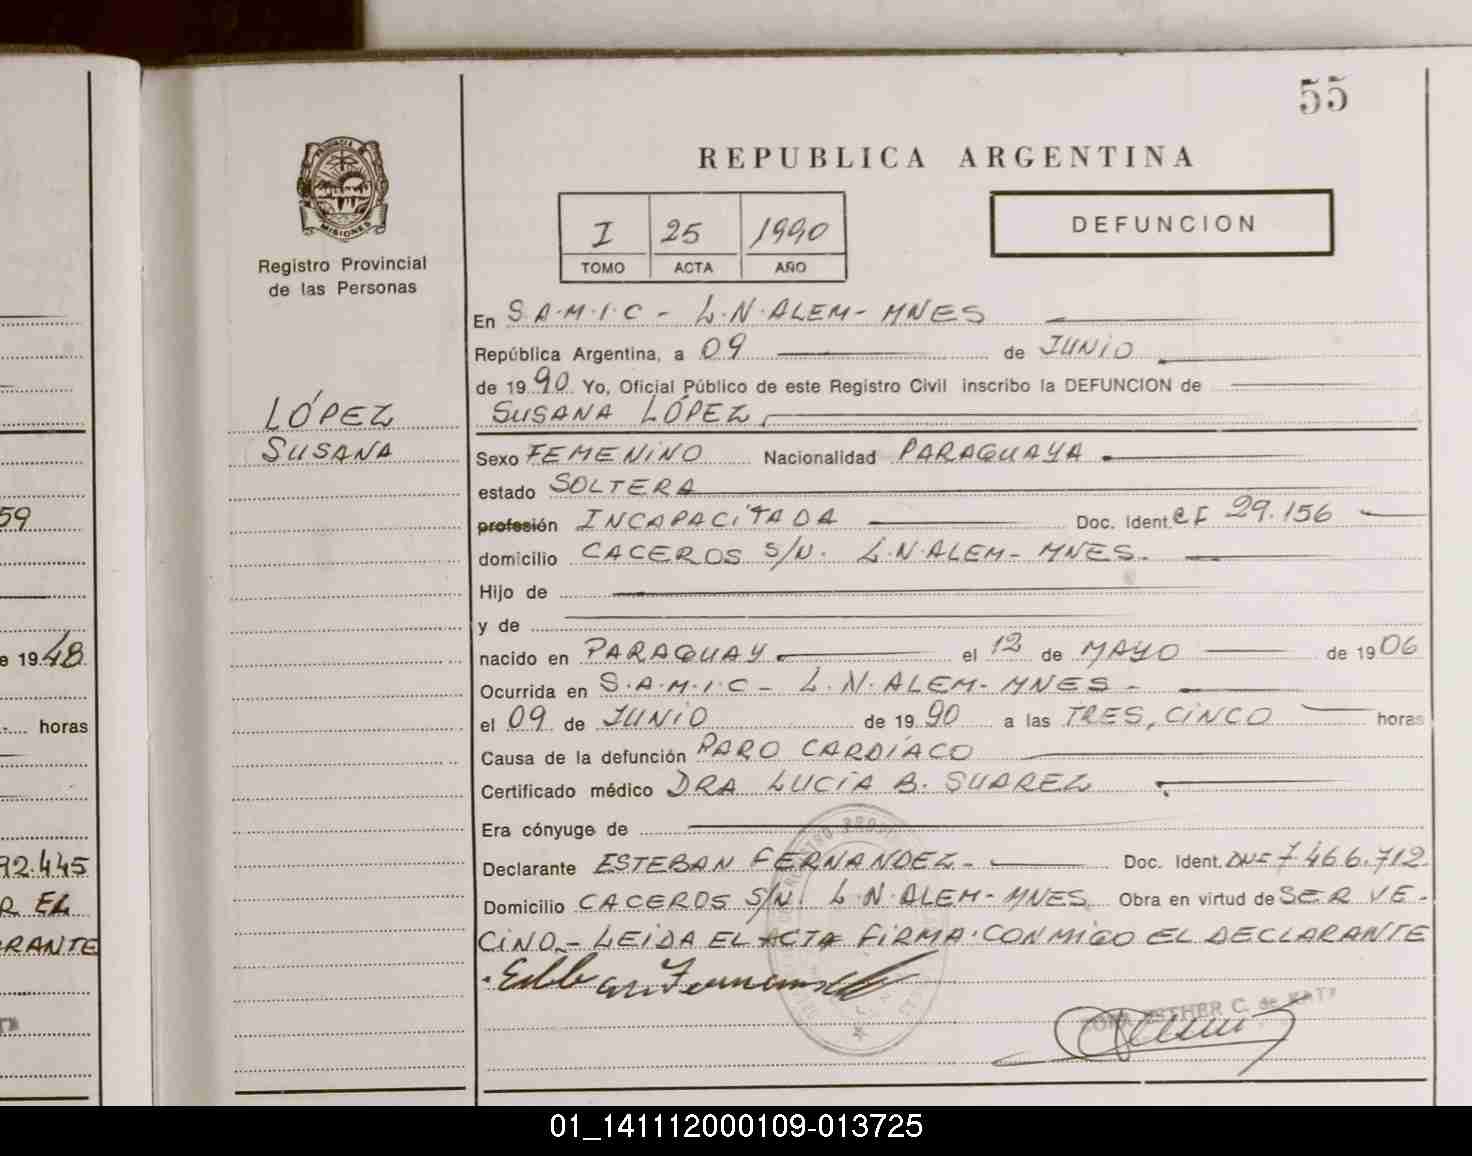 55
REPUBLICA ARGENTINA
PROVINCIA DE
MISIONES
Registro Provincial
de las Personas
I 25 1990
TOMO ACTA AÑO
DEFUNCION
En S.A.M.I.C - L.N.ALEM - MNES
República Argentina, a 09 de JUNIO
de 1990 Yo, Oficial Público de este Registro Civil inscribo la DEFUNCION de
SUSANA LÓPEZ
LÓPEZ
SUSANA
Sexo FEMENINO Nacionalidad PARAGUAYA
estado SOLTERA
profesión INCAPACITADA Doc. Ident. CI 29.156
domicilio CACEROS S/N. L.N.ALEM - MNES.
Hijo de
y de
nacido en PARAGUAY el 12 de MAYO de 1906
Ocurrida en S.A.M.I.C - L.N.ALEM - MNES -
el 09 de JUNIO de 1990 a las TRES, CINCO horas
Causa de la defunción PARO CARDÍACO
Certificado médico DRA LUCÍA B. SUAREZ
Era cónyuge de
Declarante ESTEBAN FERNANDEZ - Doc. Ident. DNI 7.466.712
Domicilio CACEROS S/N. L.N.ALEM - MNES Obra en virtud de SER VE-
CINO - LEIDA EL ACTA FIRMA CONMIGO EL DECLARANTE
ESTHER C. de
59
e 1948
horas
92.445
R EL
RANTE
01_141112000109-013725